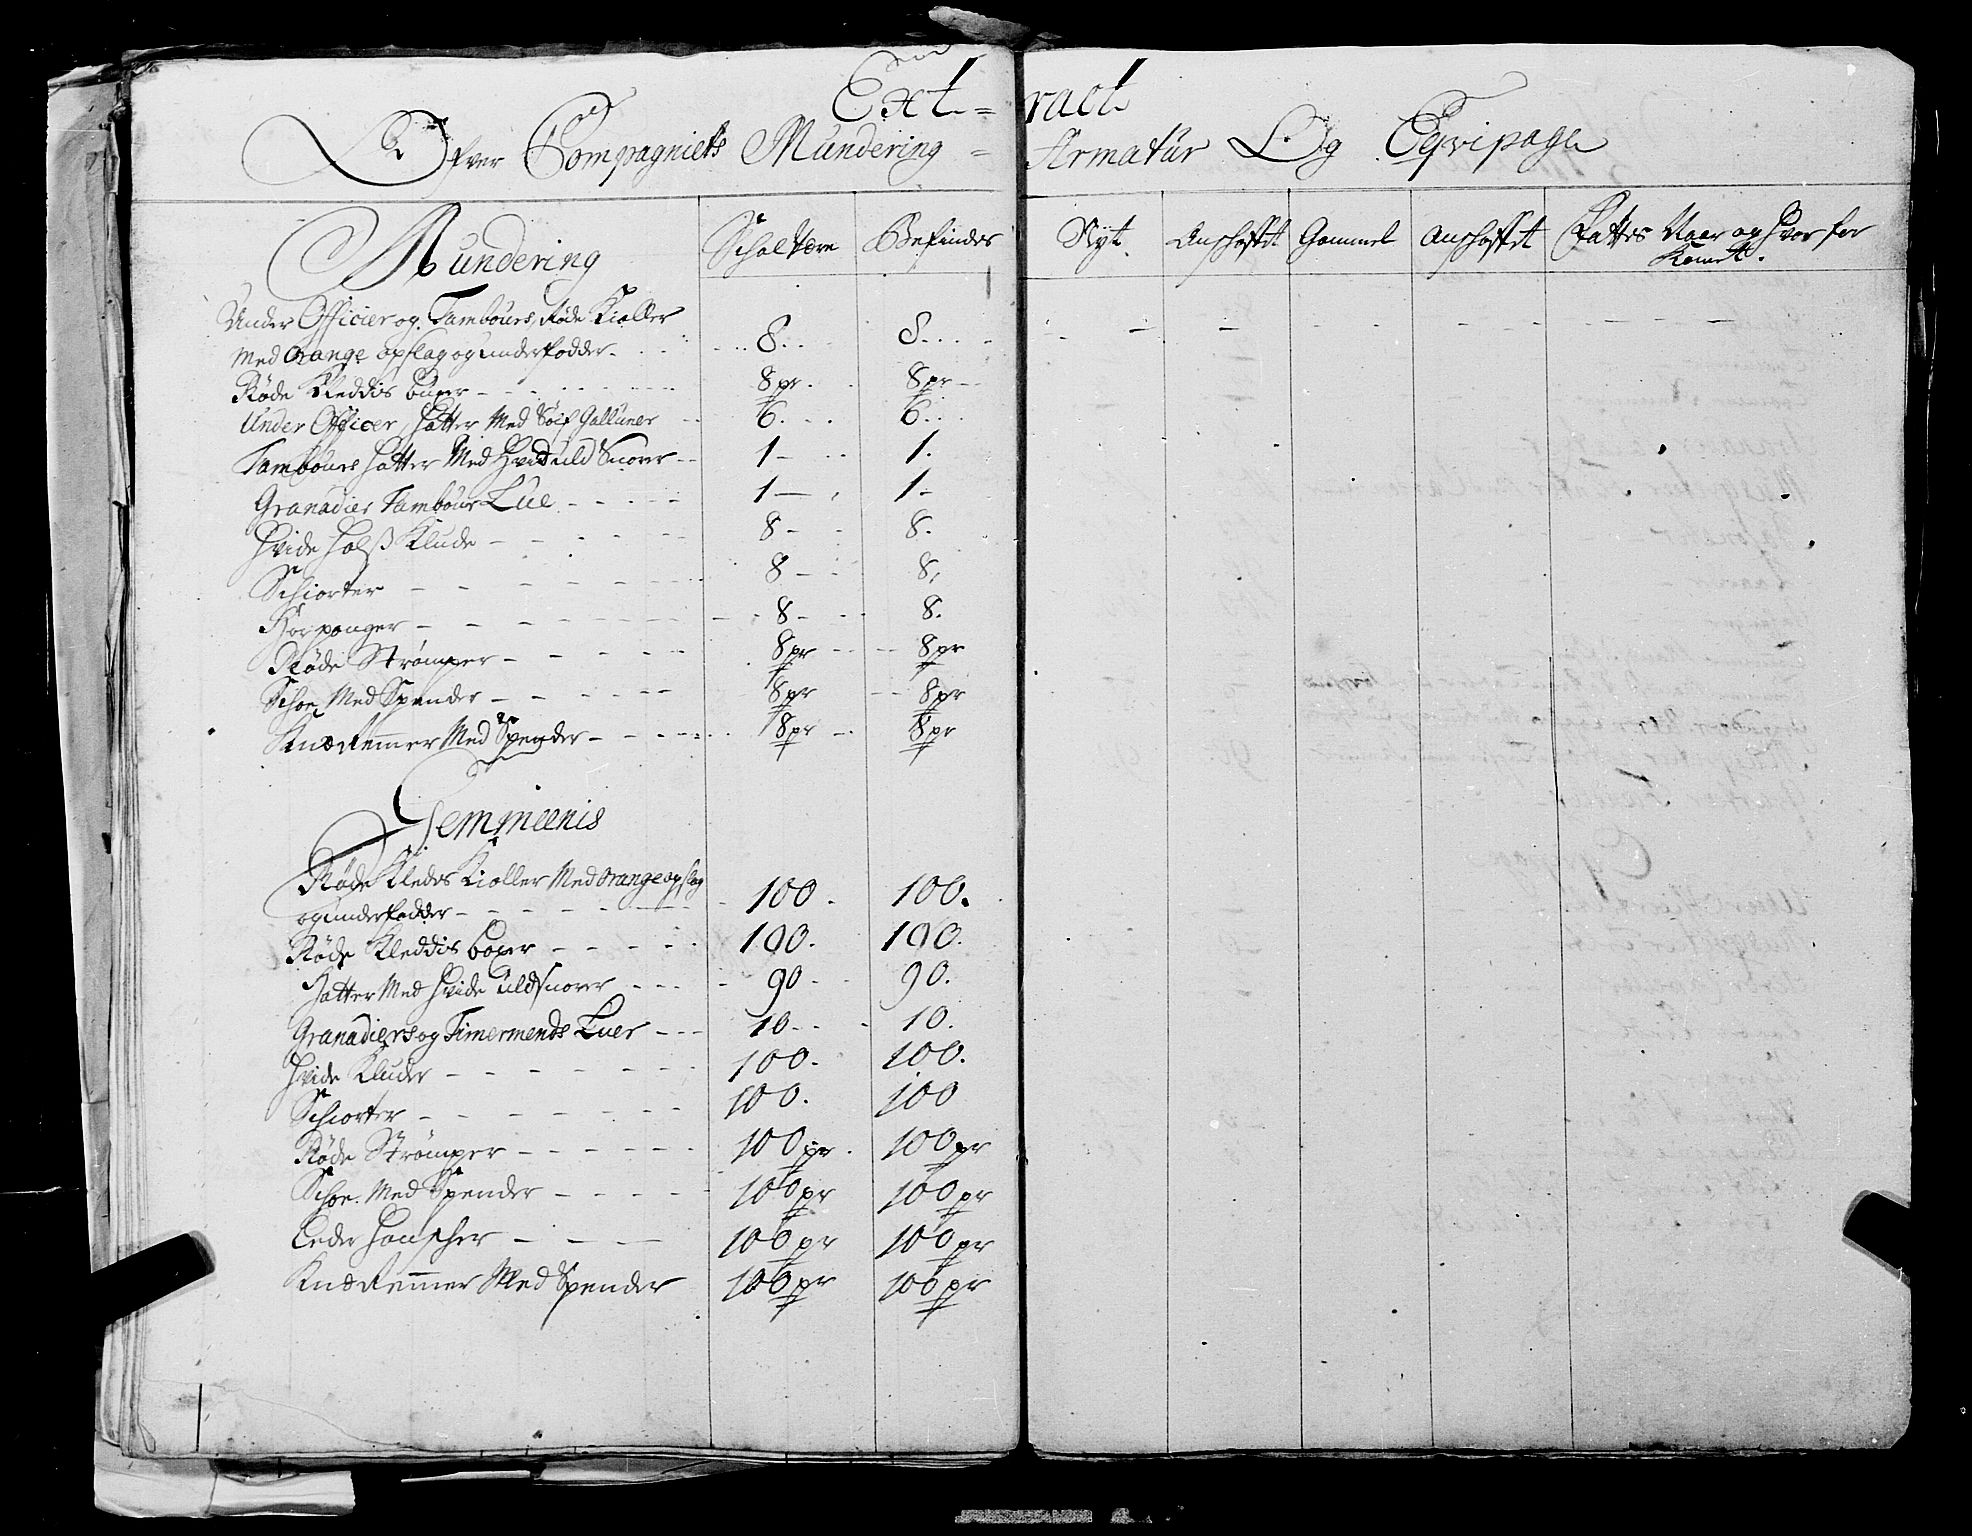 Extract
Ofver Compagniets Mundering = Armatur Og Eqvipage
Mundering Schal være Befindes Nyt. Anshaffet Gammel Anshaffet Fattes Naar og hvor for
Komet.
Under Officier og Tambours, Røde Kioller
med Orange opslag og underfodder 8 8
Røde Kleddis buxer 8 pr 8 pr
Under Officer, hatter Med Sølf Galluner 6 6
Tambours hatter Med Hvid uld Snorer 1 1.
Granadier Tambour Lue 1 1
Hvide halß Klude 8 8.
Schiorter 8 8,
Horponger 8 8.
Røde Strømper 8 pr 8 pr
Schoe Med Spender 8 pr 8 pr
Knæ Remmer Med Spender 8 pr 8 pr
Gemmeenis
Røde Kledes Kioller Med Orange opslag
og underfodder 100. 100.
Røde Kleddis boxer 100. 100.
Hatter Med Hvide Uldsnorer 90 90.
Granadiers og Timermends Luer 10 10.
Hvide Kluder 100. 100.
Schiorter 100. 100
Røde Strømper 100 pr. 100 pr
Schoe. Med Spender 100 pr 100 pr
Leder Handscher 100 pr 100 pr
Knæ Remmer Med Spender 100 pr 100 pr